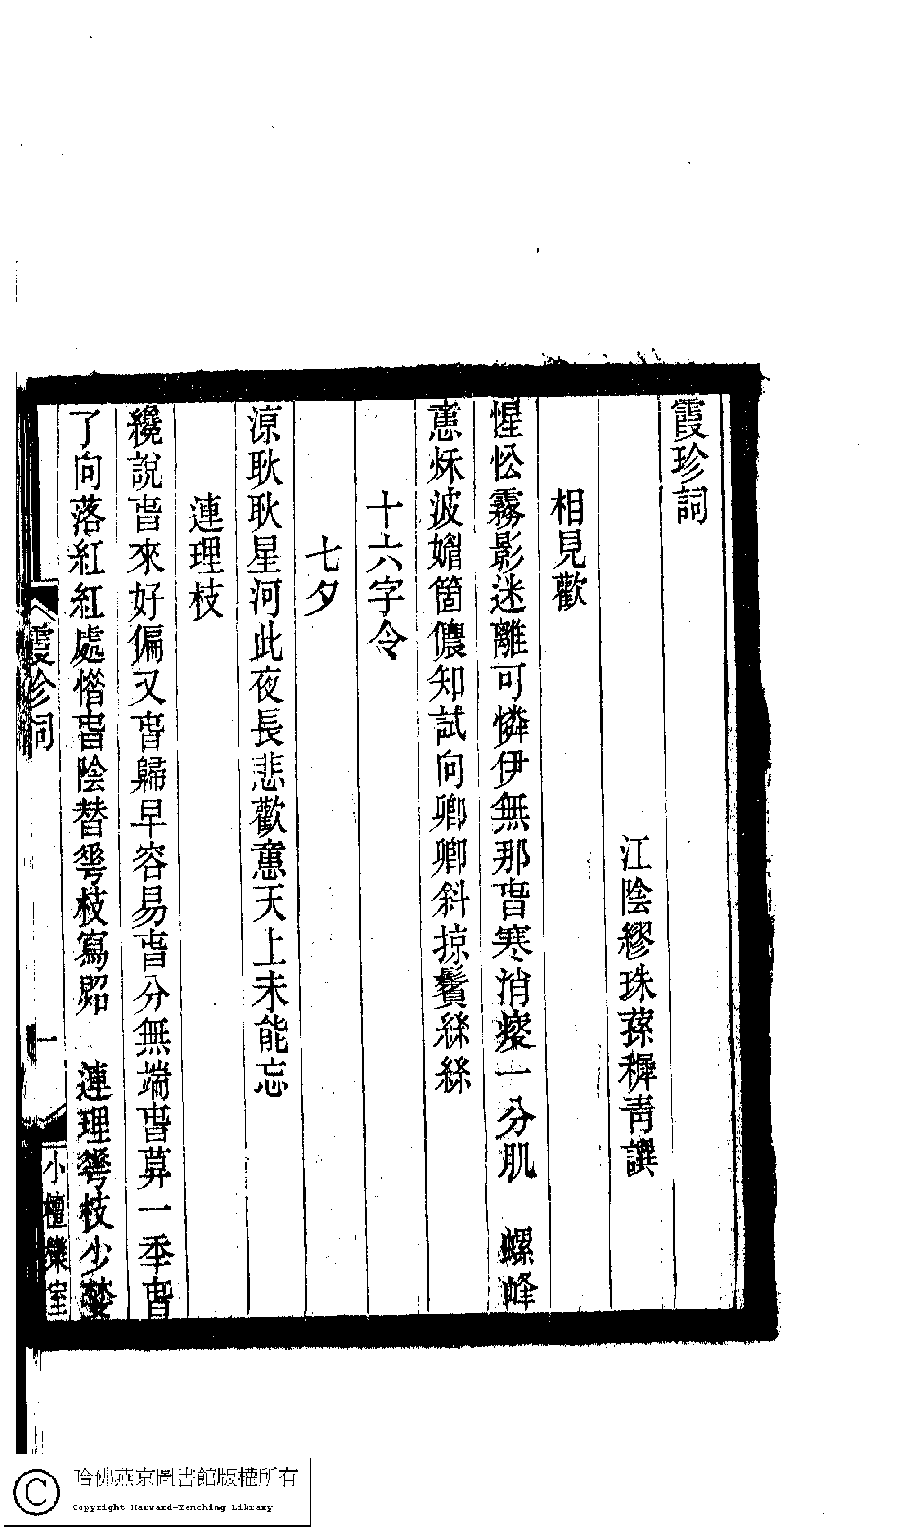 霞珍詞
江陰繆珠蓀穉青譔
相見歡
惺忪霧影迷離可憐伊無那旾寒消瘦一分肌　螺峰
秌波媚箇儂知試向卿卿斜掠鬢絲絲
十六字令
七夕
涼耿耿星河此夜長悲歡意天上未能忘
連理枝
纔說旾來好偏又旾歸早容易旾分無端旾算一秊旾
了向落紅紅處惜旾陰替華枝寫照　連理華枝少
霞珍詞
一
小檀欒室
哈佛燕京圖書館版權所有
Copyright Harvard-Yenching Library